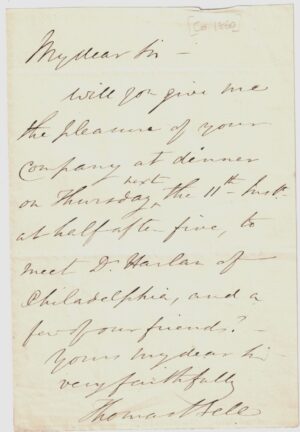 [Co 1860]
My dear Sir –
Will you give me
the pleasure of your
company at dinner
on Thursday next the 11th Inst.
at half after five, to
meet Dr. Harlan of
Philadelphia, and a
few of our friends? –
Yours my dear Sir
very faithfully
Thomas Bell